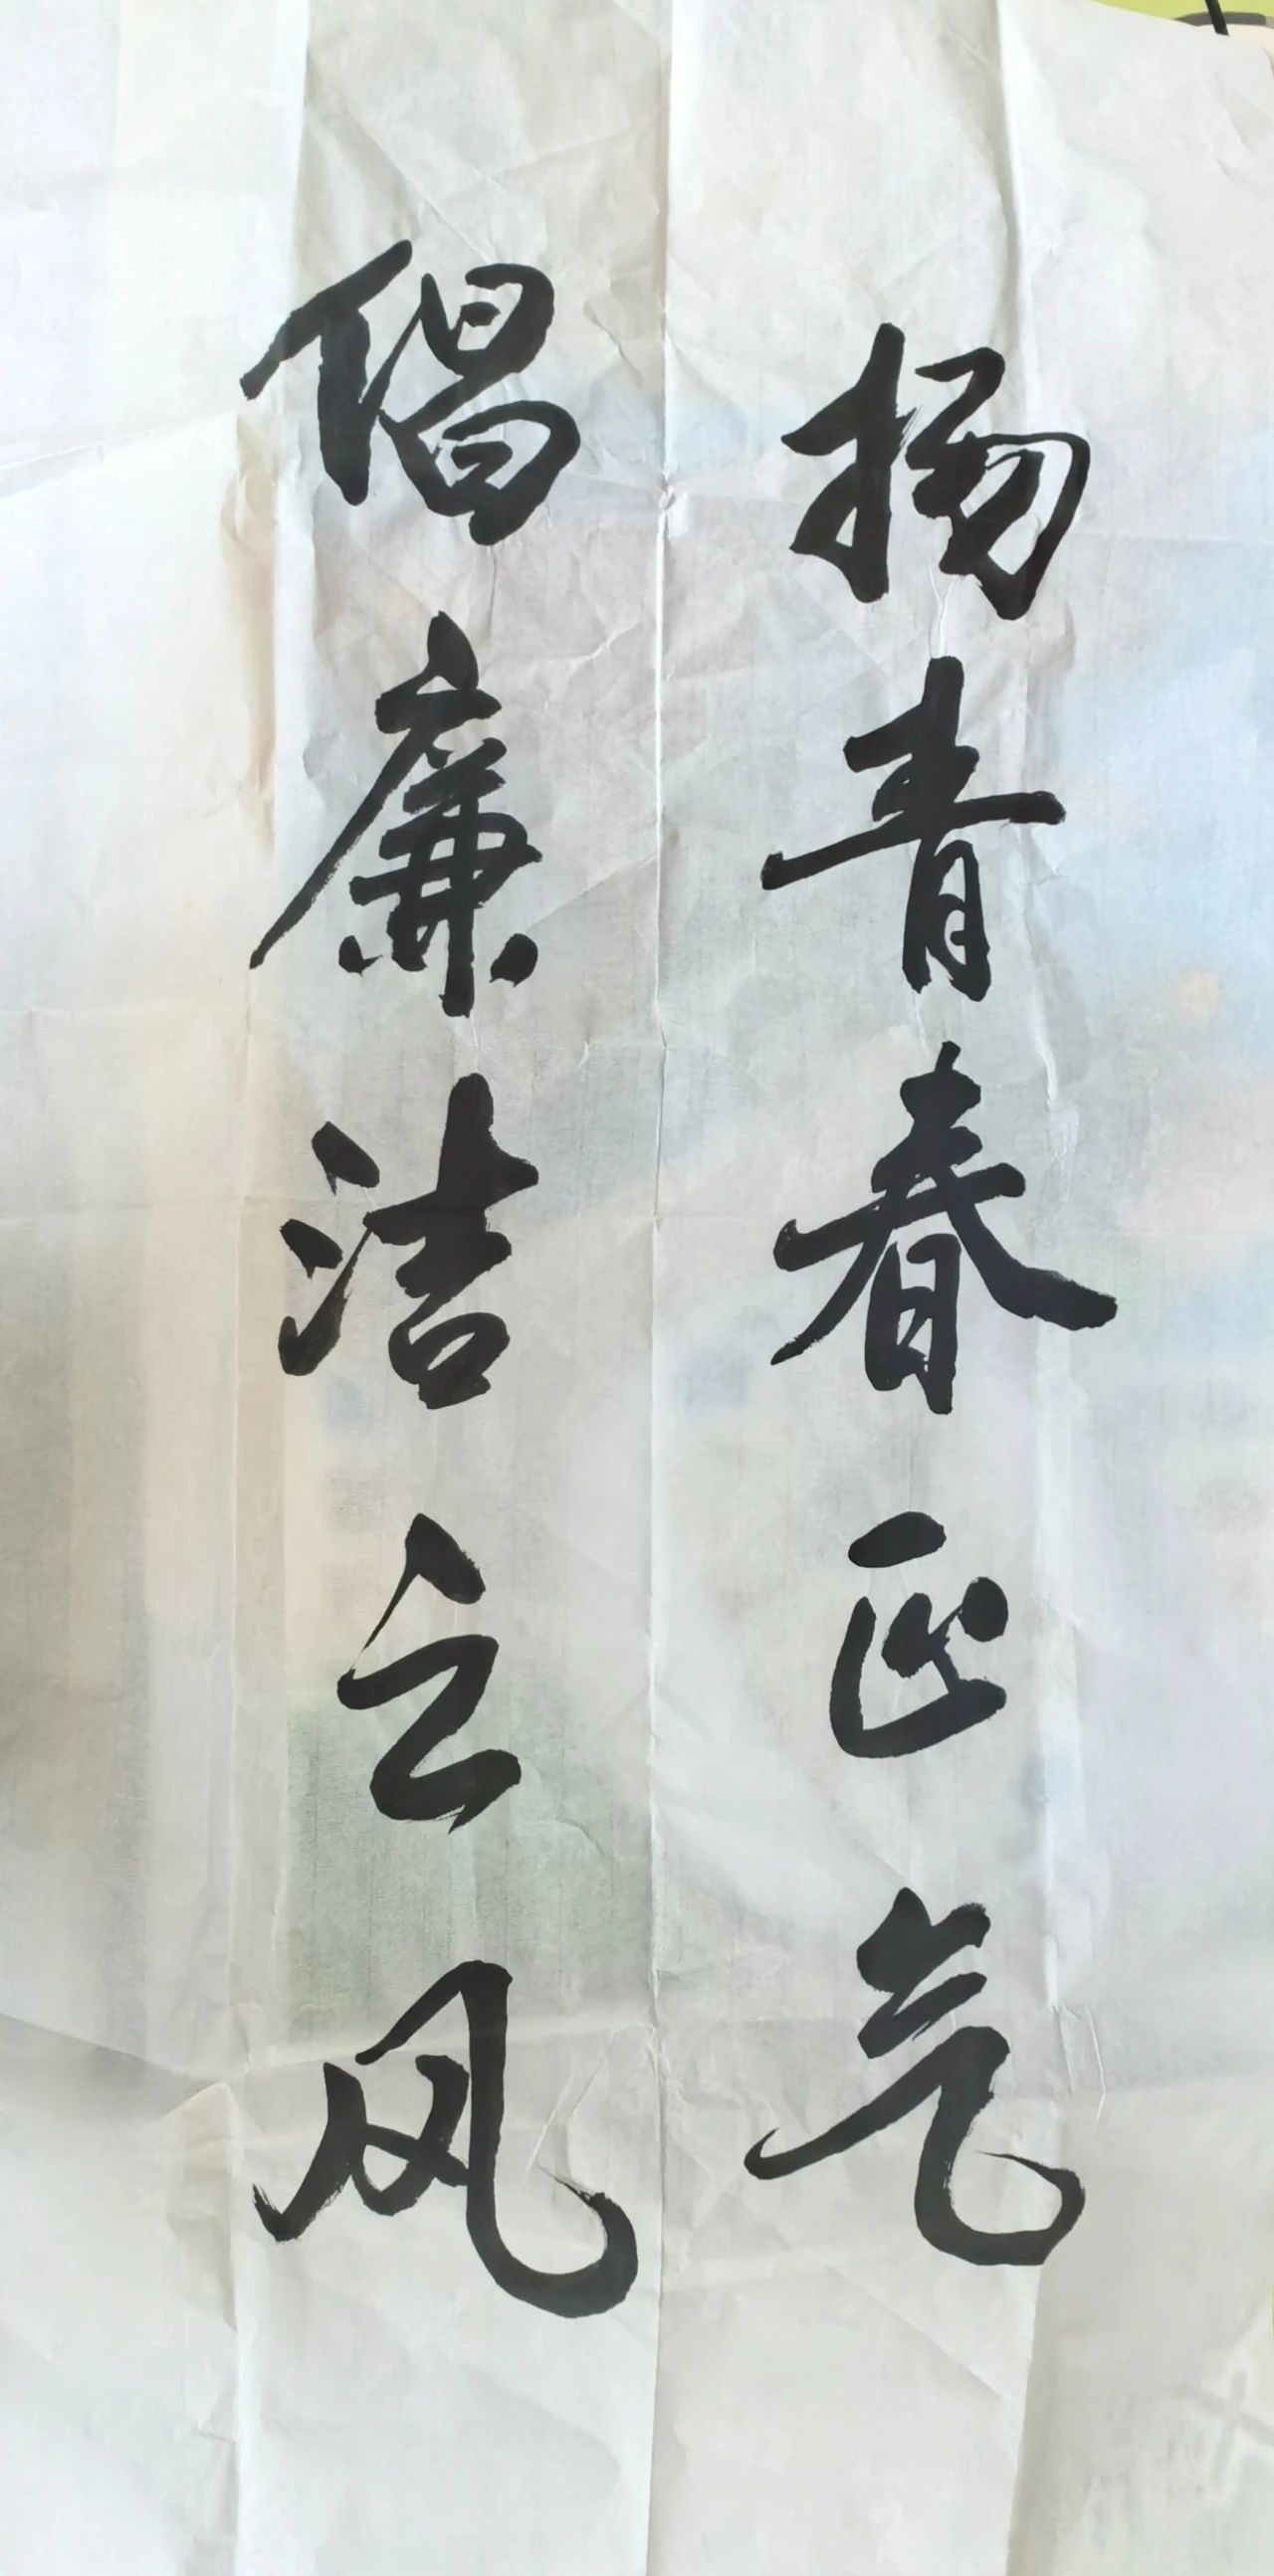 扬青春正气
倡廉洁之风